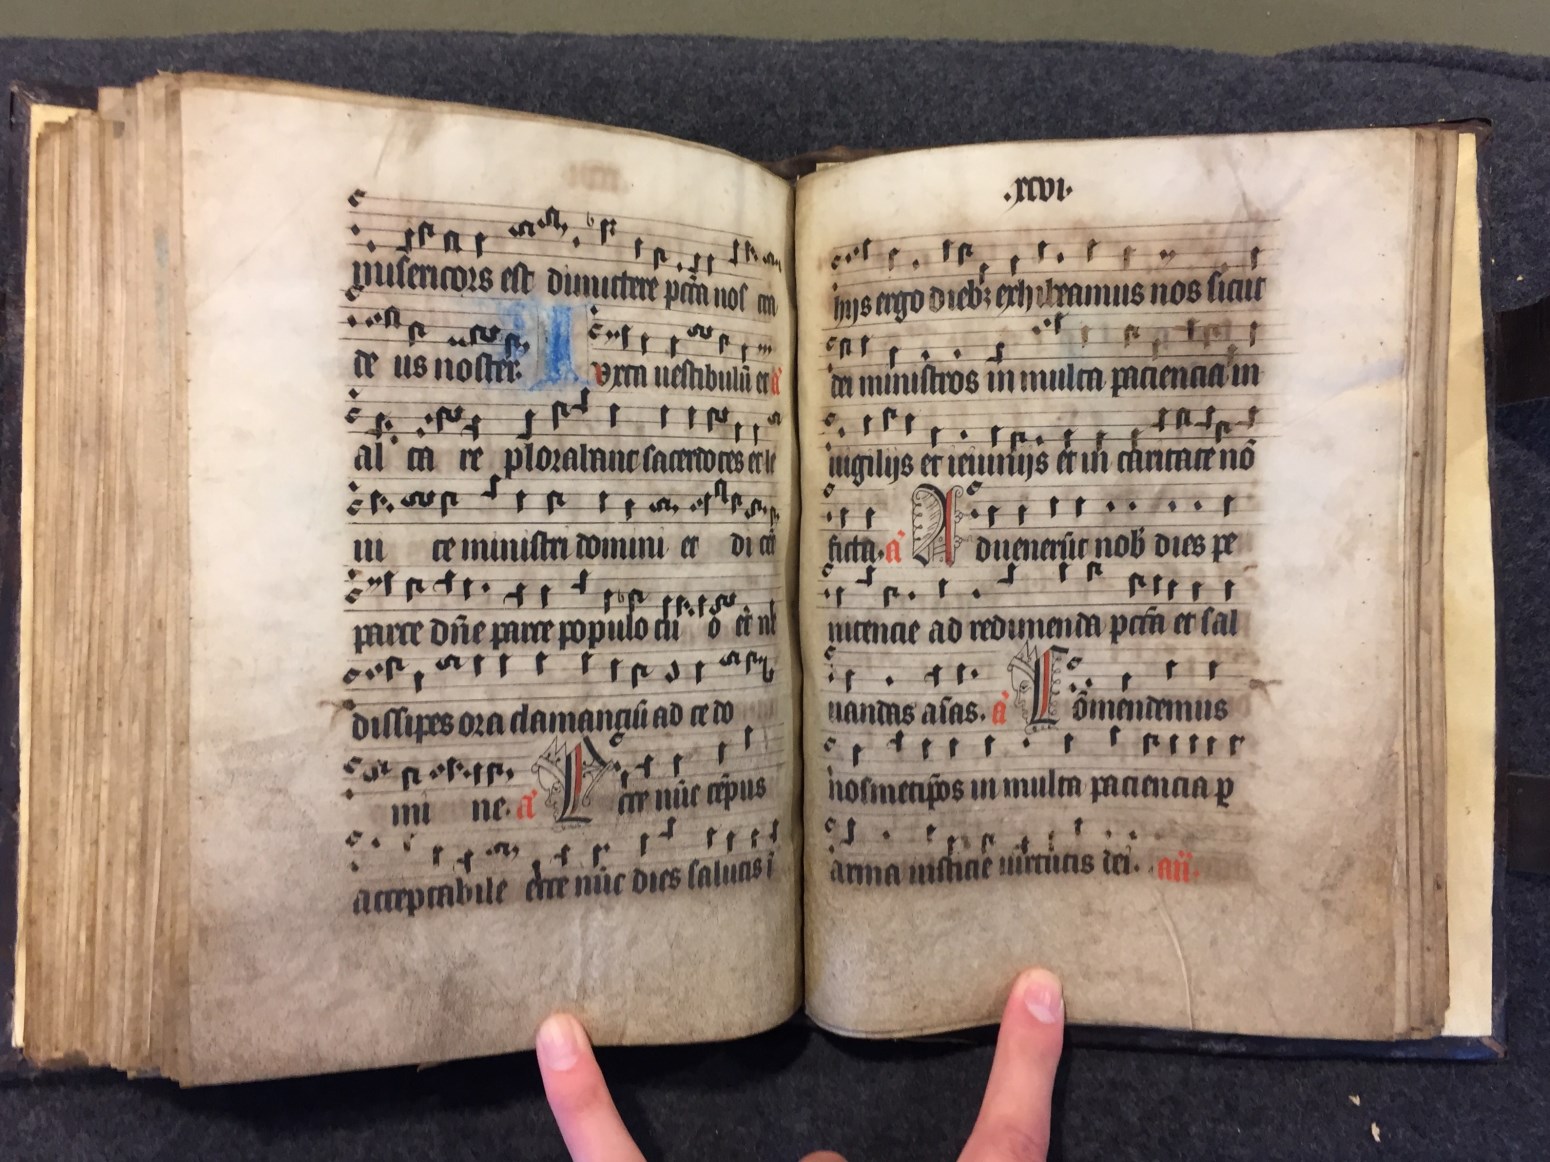 misericors est dimittere pctā nos tra
de us noster. I vxta uestibulū et a
al ta re plorabant sacerdotes et le
ui te ministri domini et di cēt
parce dn̄e parce populo tu o et ne
dissipes ora clamanciū ad te do
mi ne. a Ecce nūc tēpus
acceptabile ecce nūc dies salutis ī
.xcvi.
hijs ergo dieb; exhibeamus nos sicut
dei ministros in multa paciencia in
uigilijs et ieiunijs et in caritate nō
ficta. a Aduenerūt nob̄ dies pe
nitencie ad redimenda pctā et sal
uandas aīas. a Cōmendemus
nosmetip̄os in multa paciencia ꝑ
arma iusticie uirtutis dei. an̄.